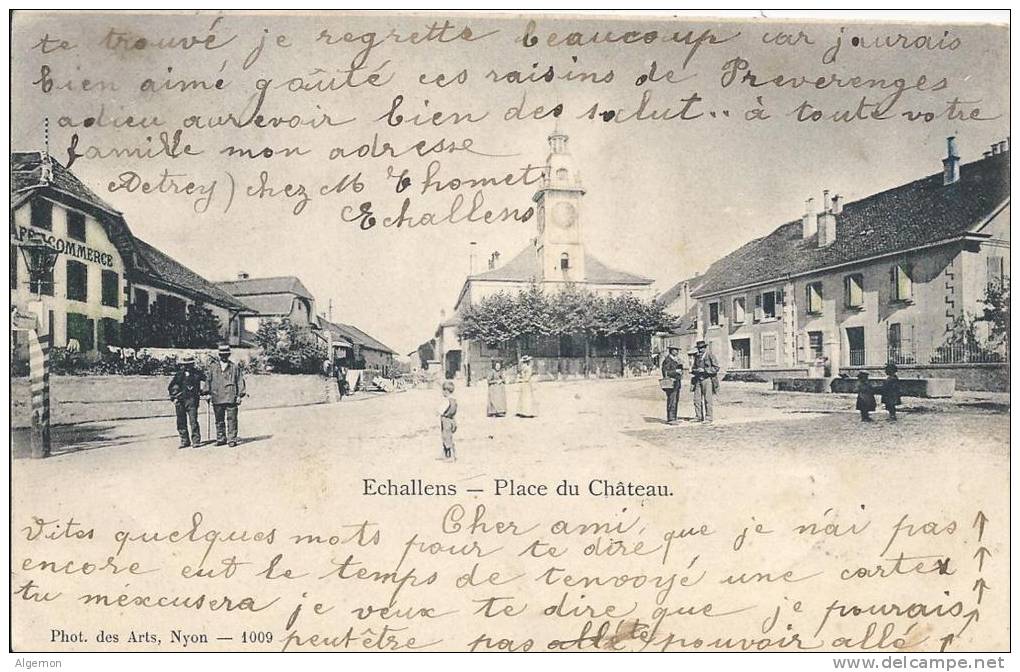 te trouvé je regrette beaucoup car jaurais
bien aimé goûté ces raisins de Preverenges
adieu aurevoir bien des salut.. à toute votre
famille mon adresse
(Detrey) chez M Thomet
Echallens
CAFÉ COMMERCE
Echallens — Place du Château.
Cher ami,
Vites quelques mots pour te dire que je n'ai pas
encore eut le temps de t'envoyé une carte
tu m'éxcusera je veux te dire que je pourais
peutêtre pas te pouvoir allé
Phot. des Arts, Nyon — 1009
Algemon
www.delcampe.net